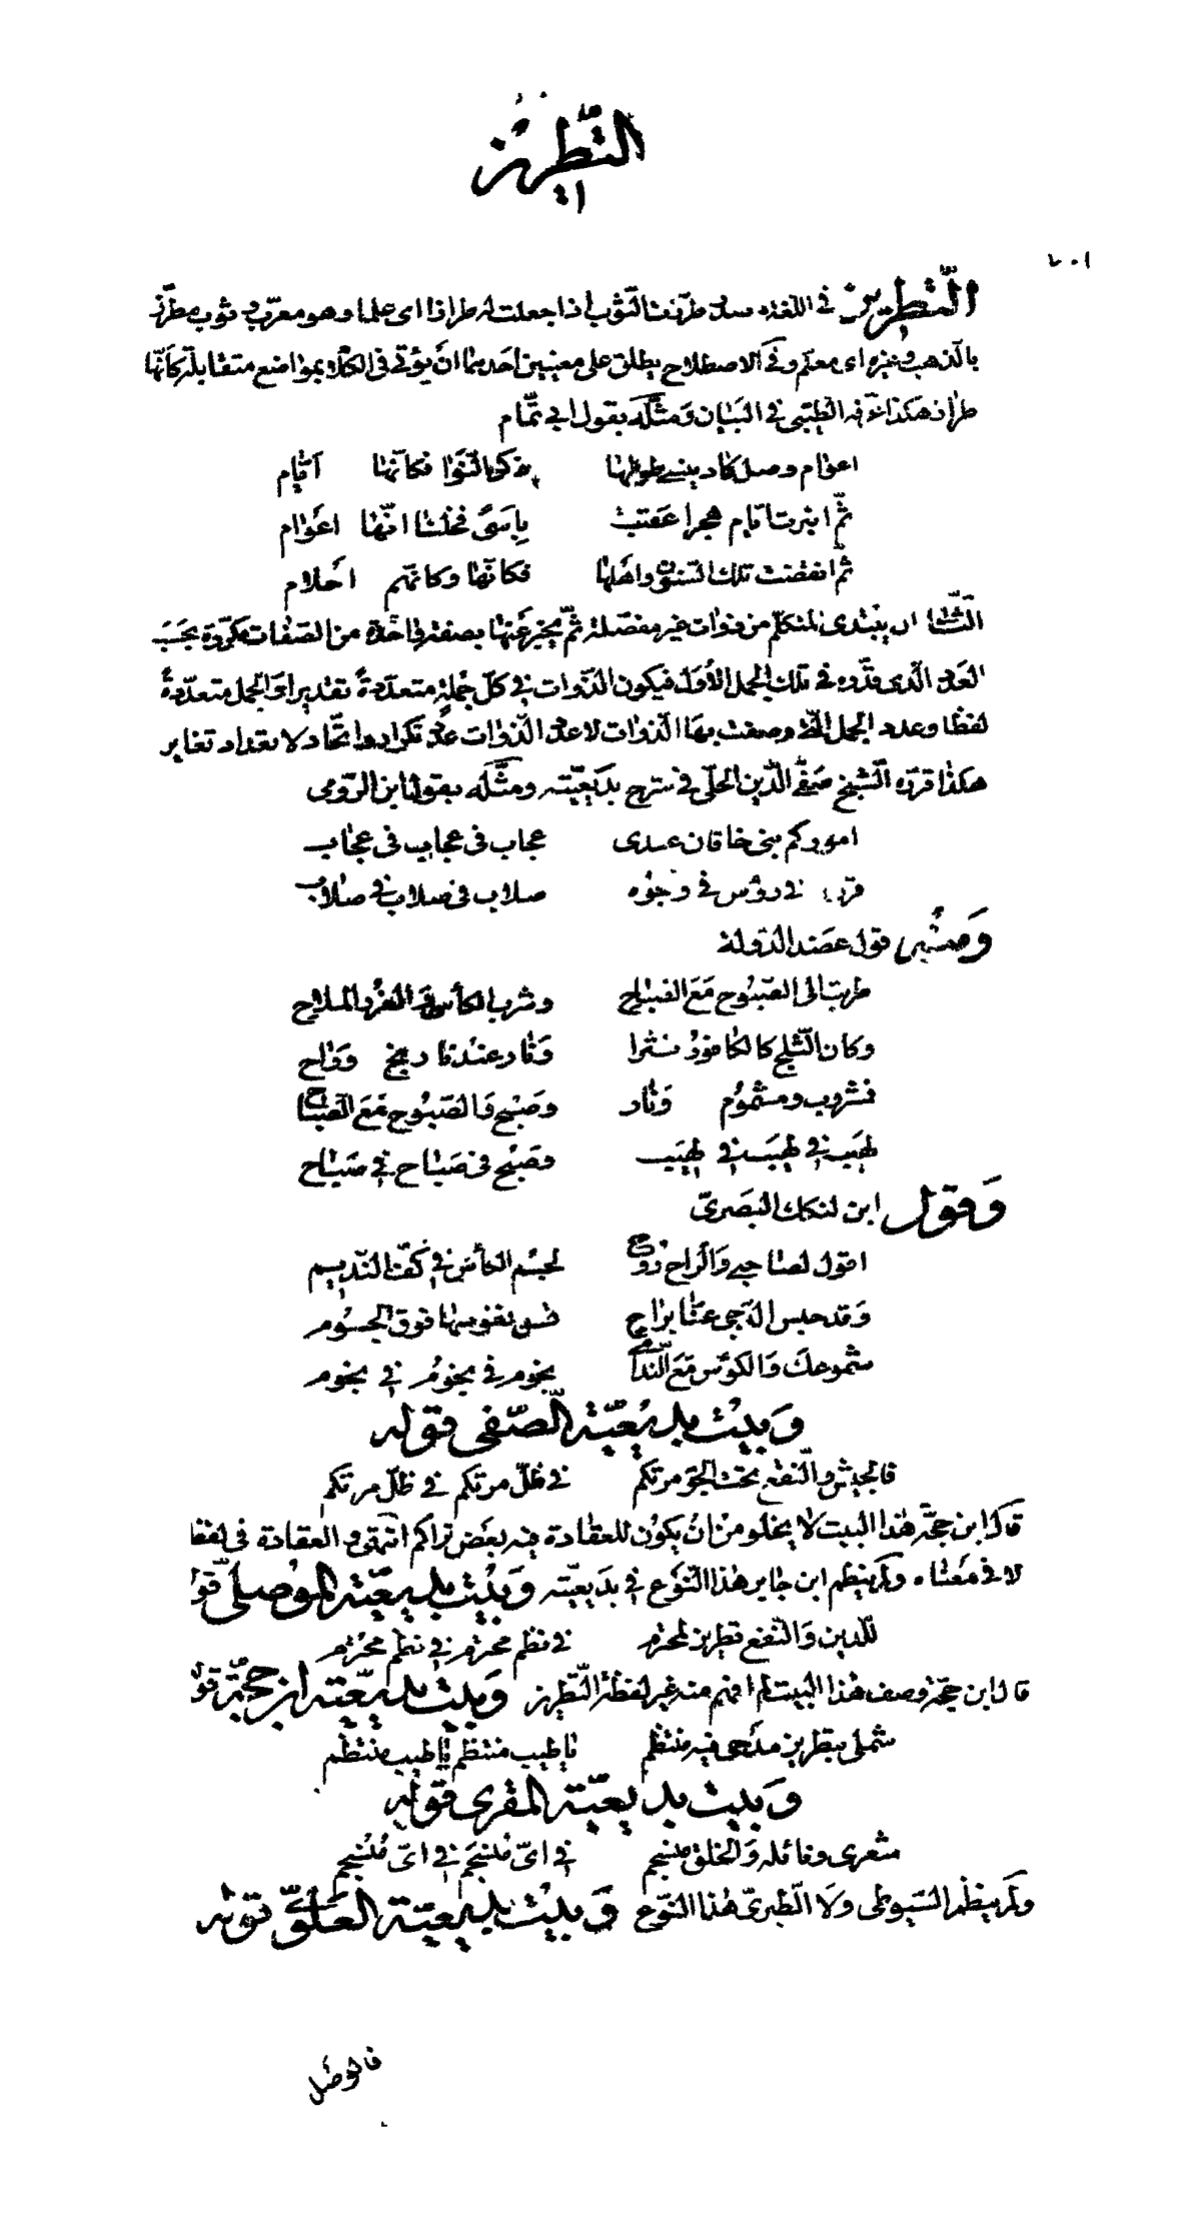 التطريز
٧٠١
التطريز في اللغة مصدر طرزت الثوب اذا جعلت له طرازا اى علما وهو معرب وثوب مطرز
بالذهب وغيره اى معلم وفى الاصطلاح يطلق على معنيين احدهما ان يؤتى فى الكلام بمواضع متقابلة كأنها
طراز هكذا عرفه الطيبى فى التبيان ومثله بقول ابى تمام
اعوام وصل كاد ينسى طولها ذكر النوى فكأنها ايام
ثم انبرت ايام هجر اعقبت باسى فخلنا انها اعوام
ثم انقضت تلك السنون واهلها فكأنها وكأنهم احلام
الثانى ان يبتدئ المتكلم من ذوات غير مفصلة ثم يخبر عنها بصفة واحدة من الصفات مكررة بحسب
العدد الذى قدره فى تلك الجمل الأول فيكون الذوات فى كل جملة متعددة تقديرا والجمل متعددة
لفظا وعدد الجمل التى وصفت بها الذوات لا عدد الذوات عدد تكرار واتحاد لا تعداد تغاير
هكذا قرره الشيخ صفى الدين الحلى فى شرح بديعيته ومثله بقول ابن الرومى
اموركم بنى خاقان عندى عجاب فى عجاب فى عجاب
قرون فى رؤس فى وجوه صلاب فى صلاب فى صلاب
ومنه قول عضد الدولة
طربت الى الصبوح مع الصباح وشرب الكأس والغرر الملاح
وكان الثلج كالكافور نثرا ونار عند نارنج وراح
فمشروب ومشموم ونار وصبح والصبوح مع الصباح
لهيب فى لهيب فى لهيب وصبح فى صباح فى صباح
وقول ابن لنكك البصرى
اقول لصاحبى والراح روح لجسم الكأس فى كف النديم
وقد حبس الدجى عنا براح نفوسها فوق الجسوم
شموعك والكوس مع الندامى نجوم فى نجوم فى نجوم
وبيت بديعية الصفى قوله
فالجيش والنقع تحت الجو مرتكم فى ظل مرتكم فى ظل مرتكم
قال ابن حجة هذا البيت لا يخلو من ان يكون للعقادة فيه بعض تراكم انتهى والعقادة فى لفظه
لا فى معناه ولم ينظم ابن جابر هذا النوع فى بديعيته وبيت بديعية الموصلى قوله
للدين والنفع تطريز لمحترم فى نظم محترم فى نظم محترم
قال ابن حجة وصف هذا البيت لم افهم منه غير لفظة التطريز وبيت بديعية ابن حجة قوله
شملى بتطريز مدحى فيه منتظم يا طيب منتظم يا طيب منتظم
وبيت بديعية المقرى قوله
شعرى وقائله والخلق منسجم فى اى منسجم فى اى منسجم
ولم ينظم السيوطى ولا الطبرى هذا النوع وبيت بديعية العلوى قوله
فالوصل